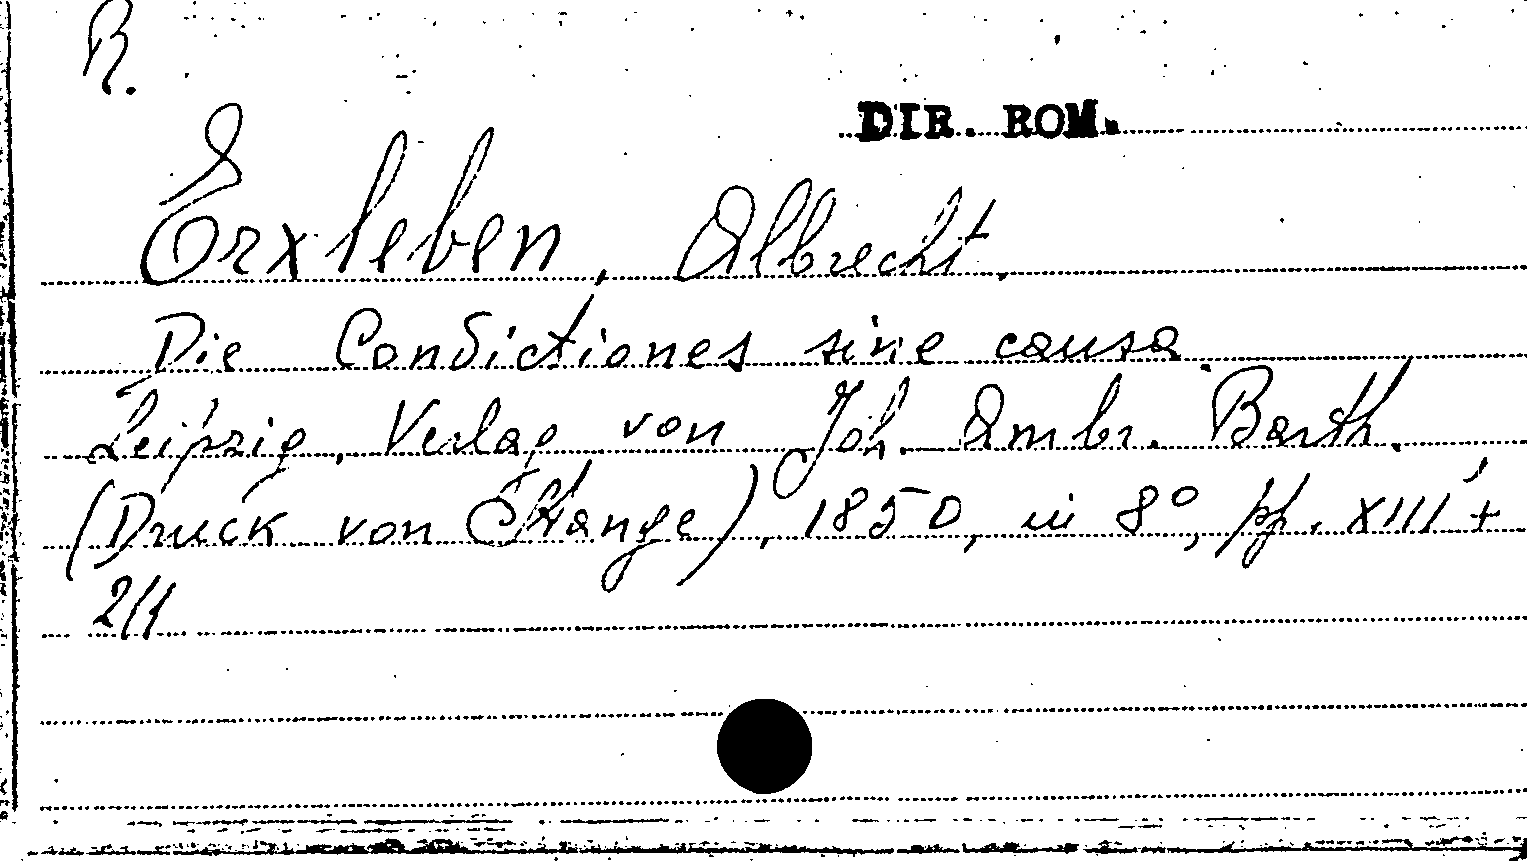 R.
DIR. ROM.
Erxleben, Albrecht.
Die Condictiones sine causa.
Leipzig, Verlag von Joh. Ambr. Barth.
(Druck von Stange), 1850, in 8°, pp. XIII +
211